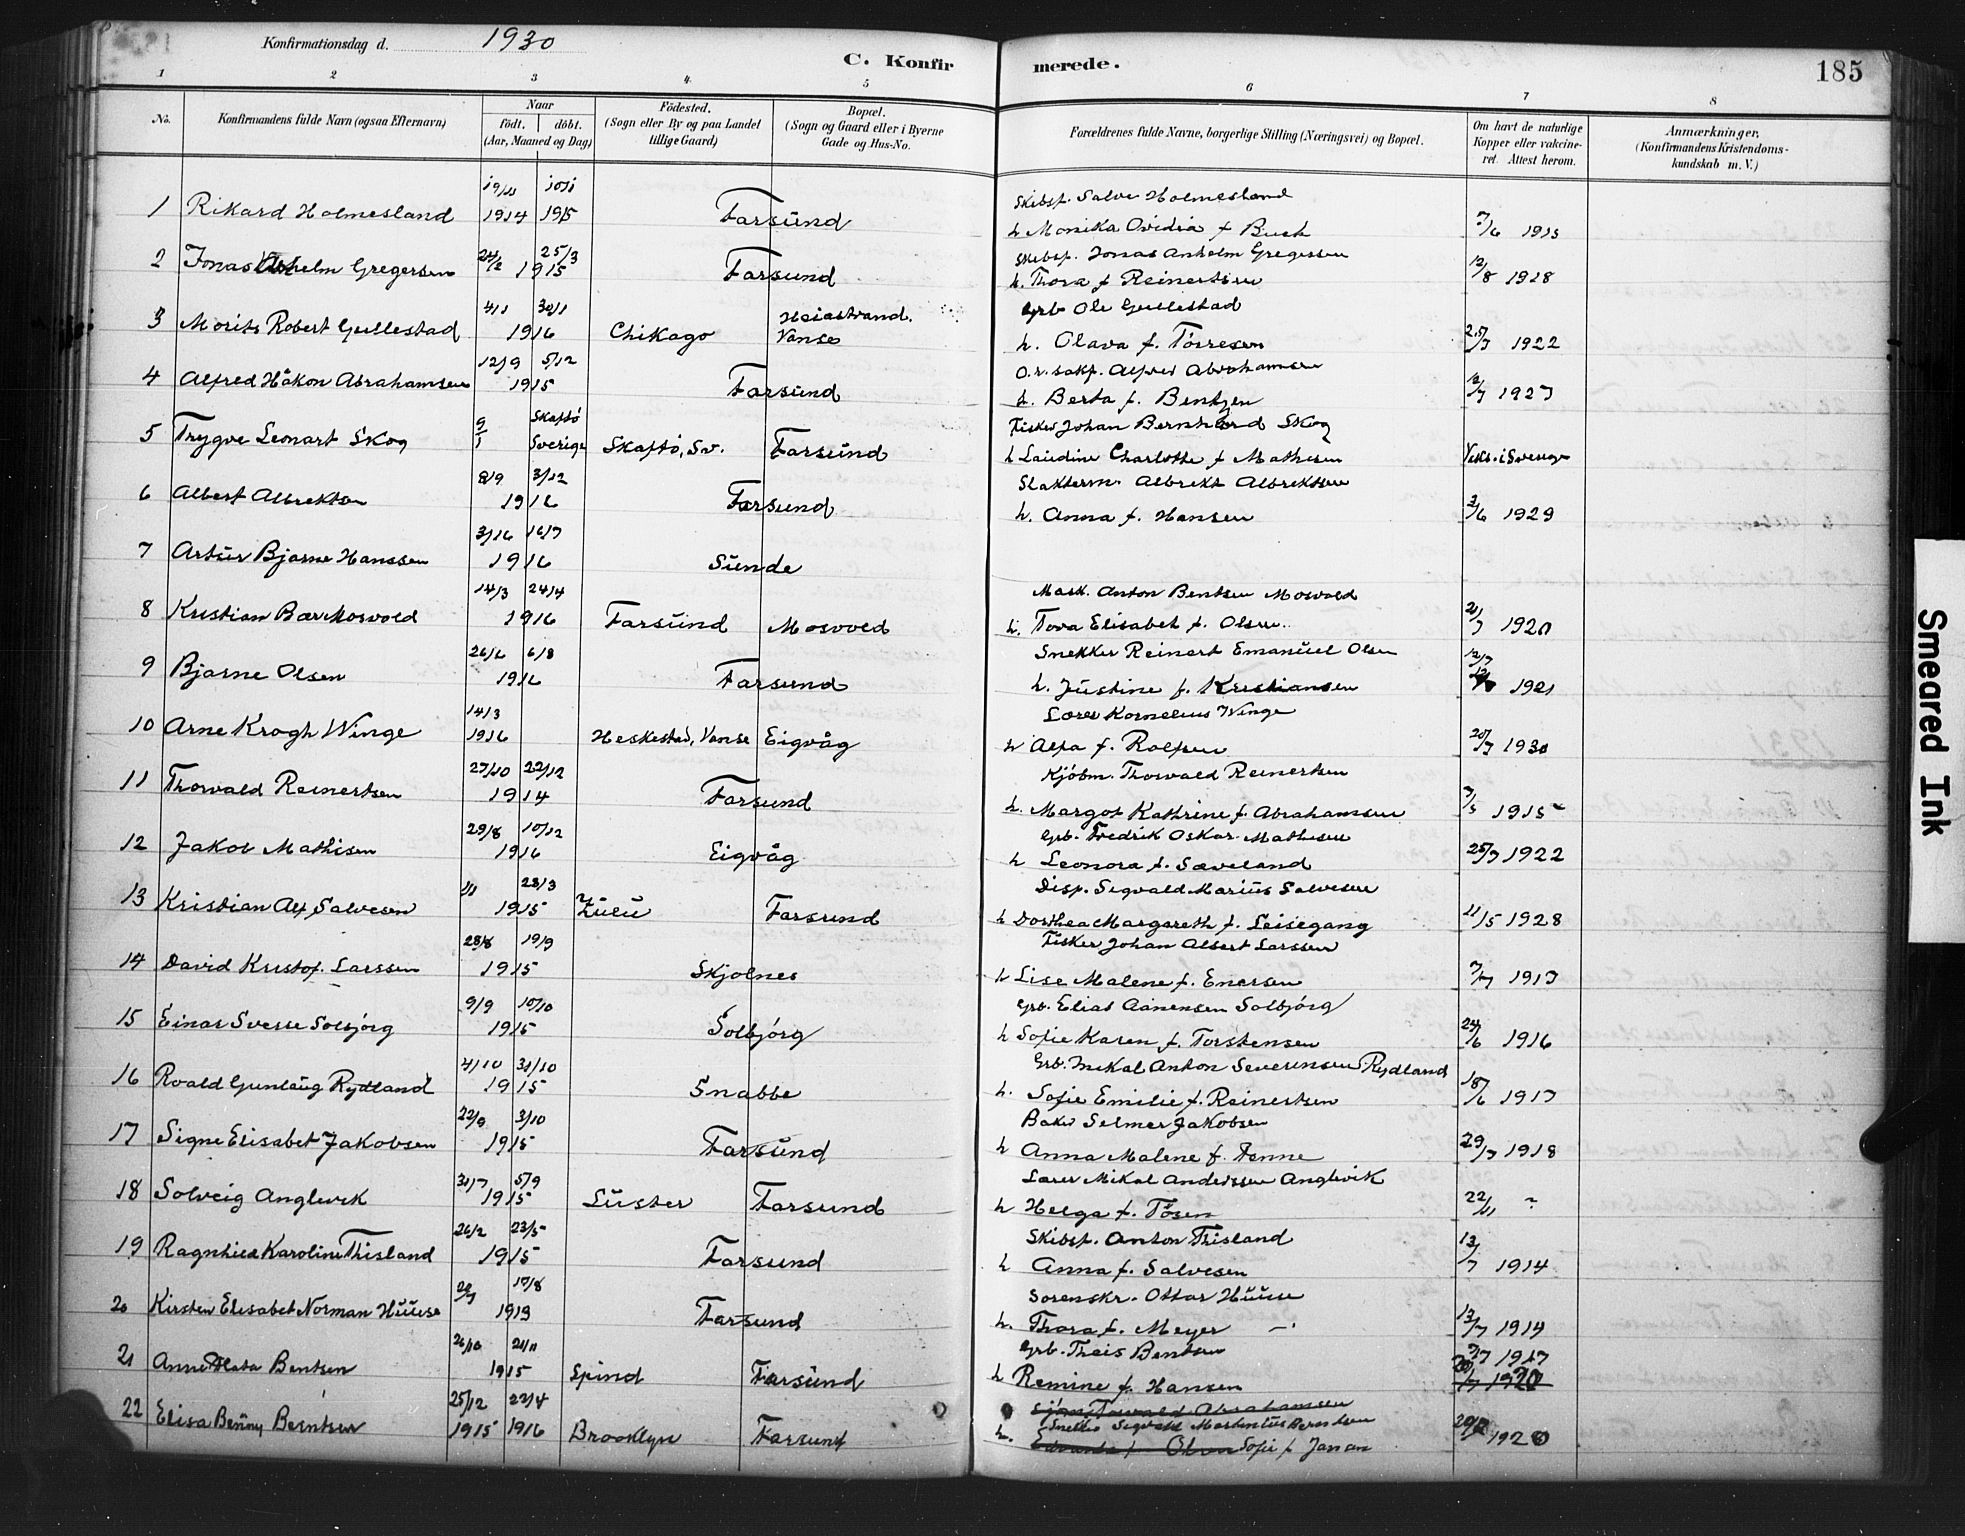 Konfirmationsdag d. 1930
C. Konfirmerede.
185
1 2 3 4 5 6 7 8
No.
Konfirmandens fulde Navn (ogsaa Efternavn)
Naar
födt. döbt.
(Aar, Maaned og Dag)
Födested.
(Sogn eller By og paa Landet
tillige Gaard)
Bopæl.
(Sogn og Gaard eller i Byerne
Gade og Hus-No.
Forældrenes fulde Navne, borgerlige Stilling (Næringsvei) og Bopæl.
Om havt de naturlige
Kopper eller vakcine-
ret. Attest herom.
Anmærkninger.
(Konfirmandens Kristendoms-
kundskab m. V.)
19/11 10/1 Skibsf. Salve Holmesland
1 Rikard Holmesland 1914 1915 Farsund h Monika Ovidia f Buch 7/6 1915
24/2 25/3 Skibsf. Jonas Anhelm Gregersen
2 Jonas Gregersen 1915 Farsund h. Thora f Reinertsen 12/8 1928
4/1 30/1 Heiastrand. Grb Ole Gullestad
3 Morits Robert Gullestad 1916 Chikago Vanse h. Olava f. Törresen 25/7 1922
12/9 5/12 O.r. sakf. Alfred Abrahamsen
4 Alfred Håkon Abrahamsen 1915 Farsund h. Berta f. Bentzen 12/7 1927
9/1 Skaftö Fisker Johan Bernhard Skog
5 Trygve Leonart Skog Sverige Skaftö, Sv. Farsund h Laudine Charlotte f Mathisen Vaks. i Sverige
8/9 3/12 Slakterm. Albrekt Albrektsen
6 Albert Albrektsen 1916 Farsund h. Anna f. Hansen 3/6 1929
3/16 16/7
7 Artur Bjarne Hanssen 1916 Sunde
14/3 24/4 Mask. Anton Bentsen Mosvold
8 Kristian Bær Mosvold 1916 Farsund Mosvold h. Tova Elisabet f. Olsen 21/7 1920
26/6 6/8 Snekker Reinert Emanuel Olsen 12/7
9 Bjarne Olsen 1916 Farsund h. Justine f. Kristiansen 1921
14/3 Lærer Kornelius Winge
10 Arne Krogh Winge 1916 Heskestad, Vanse Eigvåg h Alfa f. Rolfsen 20/7 1930
27/10 22/12 Kjöbm. Thorvald Reinertsen
11 Thorvald Reinertsen 1914 Farsund h. Margot Kathrine f. Abrahamsen 7/5 1915
29/8 10/12 Grb. Fredrik Oskar Mathisen
12 Jakob Mathisen 1916 Eigvåg h Leonora f. Sæveland 25/7 1922
1/1 28/3 Disp. Sigvald Marius Salvesen
13 Kristian Alf Salvesen 1915 Zulu Farsund h Dorthea Margareth f. Leisegang 11/5 1928
28/8 19/9 Fisker Johan Albert Larssen
14 David Kristof. Larssen 1915 Skjolnes h Lise Malene f. Enersen 7/7 1917
9/9 10/10 Grb. Elias Aanensen Solbjörg
15 Einar Sverre Solbjörg 1915 Solbjörg h Sofie Karen f. Torstensen 24/6 1916
4/10 31/10 Grb. Mikal Anton Severinsen Rydland
16 Roald Gunlaug Rydland 1915 Snabbe h. Sofie Emilie f. Reinertsen 18/6 1917
22/9 3/10 Baker Selmer Jakobsen
17 Signe Elisabet Jakobsen 1915 Farsund h Anna Malene f. Tønne 29/7 1918
31/7 5/9 Lærer Mikal Anderssen Anglevik
18 Solveig Anglevik 1915 Luster Farsund h Helga f. Tösen 22/11 ?
26/2 23/5 Skibsf. Anton Thisland
19 Ragnhild Karoline Thisland 1915 Farsund h Anna f. Salvesen 13/7 1914
29/7 17/8 Sorenskr. Ottar Huuse
20 Kirsten Elisabet Norman Huuse 1913 Farsund h. Thora f. Meyer 13/7 1914
26/10 21/11 Grb. Theis Bentsen 7/7 1917
21 Anne Bentsen 1915 Spind Farsund h Remine f. Hansen 1920
25/12 22/4 Torvald Abrahamsen
Snekker Sigvald Martinius Berntsen
22 Elisa Benny Berntsen 1915 1916 Brooklyn Farsund h. Olsen Sofie f Jansen 1920
Smeared Ink